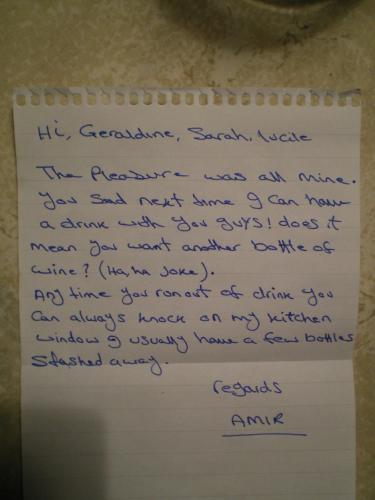 Hi, Geraldine, Sarah, Lucile
The Pleasure was all mine.
You said next time I can have
a drink with you guys! does it
mean you want another bottle of
wine? (Ha, ha Joke).
Any time you run out of drink you
can always knock on my kitchen
window I usually have a few bottles
Stashed away.
regards
AMIR